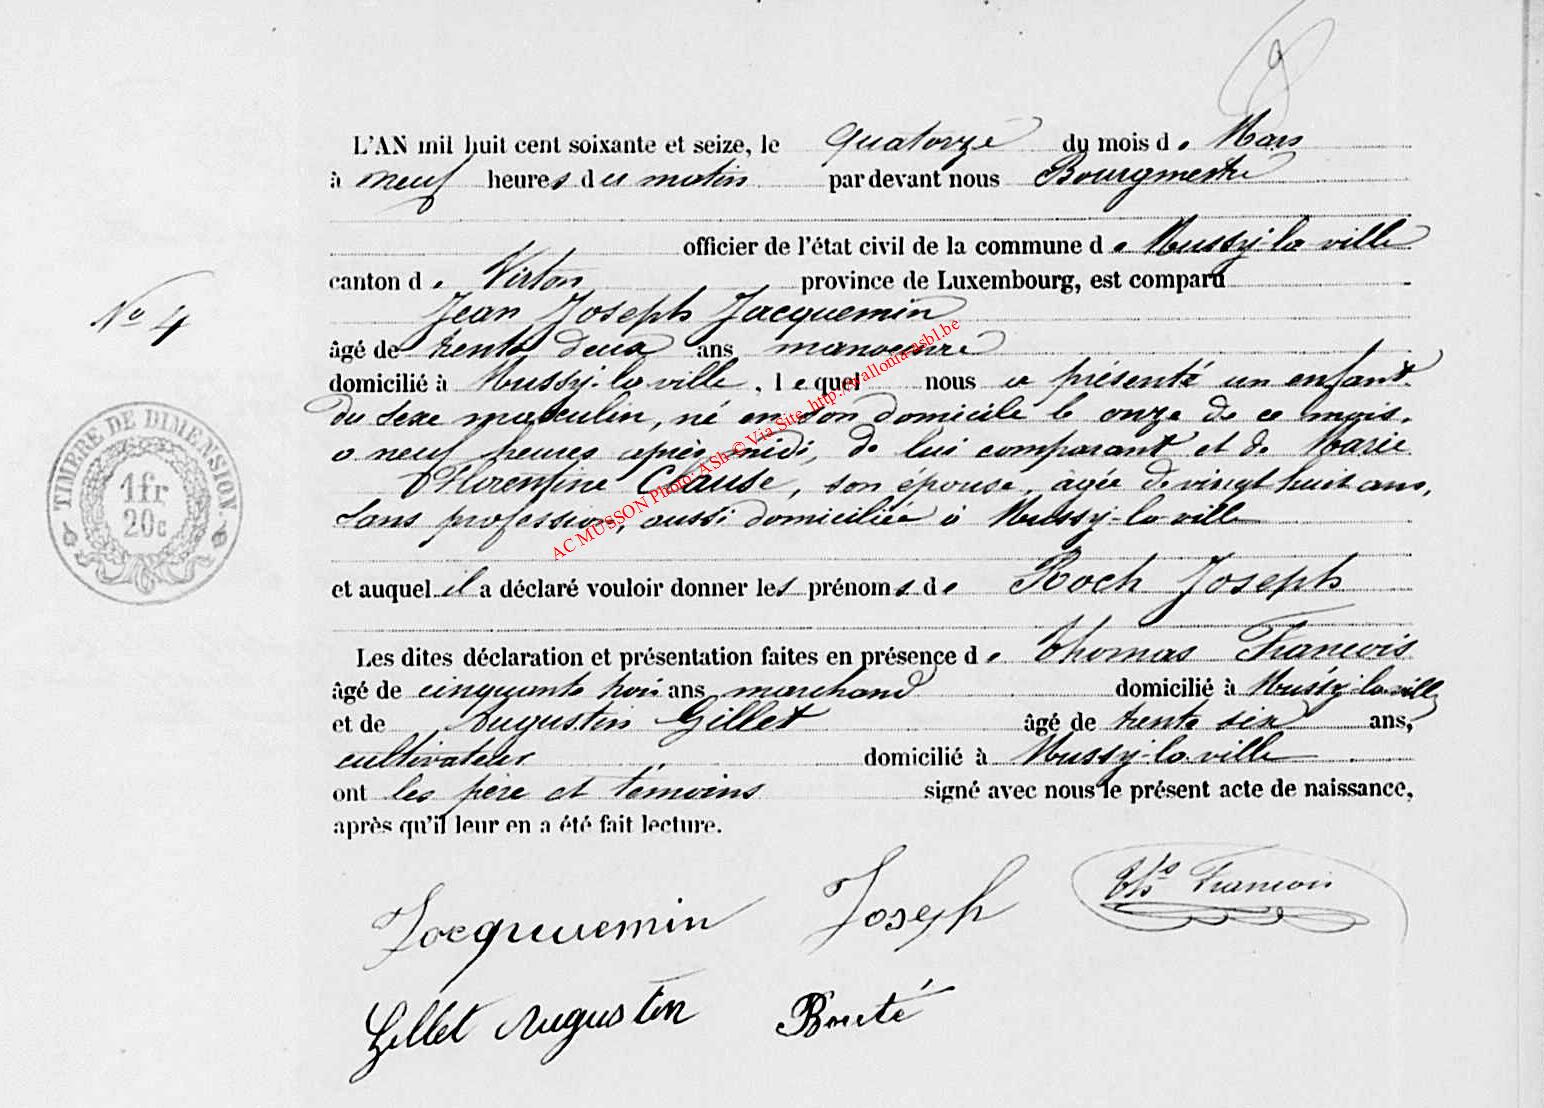 8
L'AN mil huit cent soixante et seize, le quatorze du mois de Mars
à neuf heures du matin par devant nous Bourgmestre
officier de l'état civil de la commune de Mussy-la-ville
canton de Virton province de Luxembourg, est comparu
Jean Joseph Jacquemin
No 4
âgé de trente deux ans manoeuvre
domicilié à Mussy-la-ville, lequel nous a présenté un enfant
du sexe masculin, né en son domicile le onze de ce mois,
à neuf heures après-midi, de lui comparant et de Marie
Florentine Clause, son épouse, agée de vingt huit ans,
sans profession, aussi domiciliée à Mussy-la-ville
TIMBRE DE DIMENSION
1fr
20c
et auquel il a déclaré vouloir donner les prénoms de Roch Joseph
Les dites déclaration et présentation faites en présence de Thomas François
âgé de cinquante trois ans marchand domicilié à Mussy-la-ville
et de Augustin Gillet âgé de trente six ans,
cultivateur domicilié à Mussy-la-ville
ont les père et témoins signé avec nous le présent acte de naissance,
après qu'il leur en a été fait lecture.
Jacquuemin Joseph Ths François
Gillet Augustin
AC MUSSON Photo: ASb © Via Site http://wallonia-asbl.be